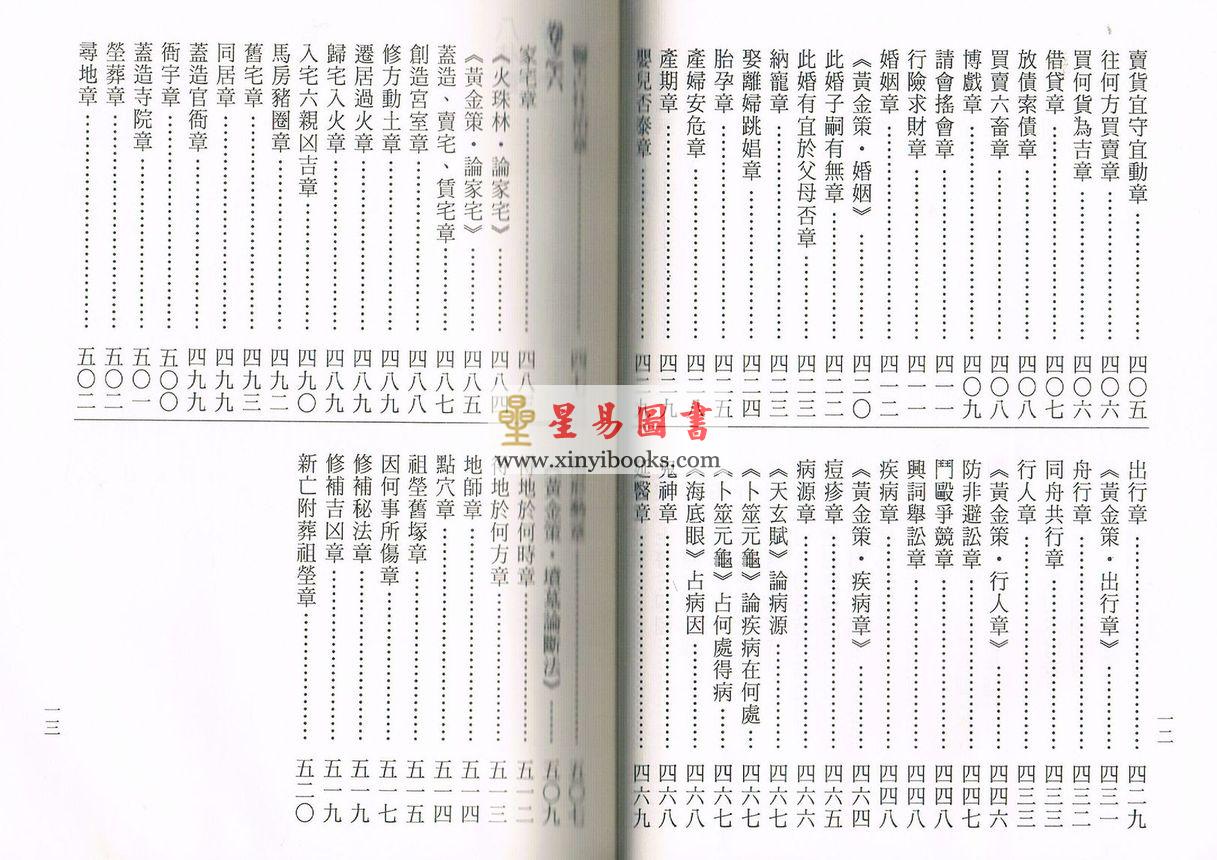 賣貨宜守宜動章……四〇五
往何方買賣章……四〇六
買何貨為吉章……四〇六
借貸章……四〇七
放債索債章……四〇八
買賣六畜章……四〇八
博戲章……四〇九
請會搖會章……四一一
行險求財章……四一一
婚姻章……四一二
《黃金策·婚姻》……四二〇
此婚子嗣有無章……四二二
此婚有宜於父母否章……四二三
納寵章……四二三
娶離婦跳娼章……四二四
胎孕章……四二五
產婦安危章……四二八
產期章……四二九
嬰兒否泰章……四二九
出行章……四二九
《黃金策·出行章》……四三一
舟行章……四三二
同舟共行章……四三三
行人章……四三三
《黃金策·行人章》……四四六
防非避訟章……四四七
鬥毆爭競章……四四八
興詞舉訟章……四四八
疾病章……四四八
《黃金策·疾病章》……四六四
痘疹章……四六五
病源章……四六六
《天玄賦》論病源……四六七
《卜筮元龜》論疾病在何處……四六七
《卜筮元龜》占何處得病……四六八
《海底眼》占病因……四六八
鬼神章……四六八
延醫章……四六九
一二
卷之六
家宅章……四八
《火珠林·論家宅》……四八四
《黃金策·論家宅》……四八五
蓋造、賣宅、賃宅章……四八七
創造宮室章……四八八
修方動土章……四八九
遷居過火章……四八九
歸宅入火章……四八九
入宅六親凶吉章……四九〇
馬房豬圈章……四九二
舊宅章……四九三
同居章……四九九
蓋造官衙章……四九九
衙宇章……五〇〇
蓋造寺院章……五〇一
塋葬章……五〇二
尋地章……五〇二
五〇七
《黃金策·墳墓論斷法》……五〇九
得地於何時章……五一二
得地於何方章……五一三
地師章……五一四
點穴章……五一四
祖塋舊塚章……五一五
因何事所傷章……五一七
修補秘法章……五一九
修補吉凶章……五一九
新亡附葬祖塋章……五二〇
一三
星易圖書
www.xinyibooks.com